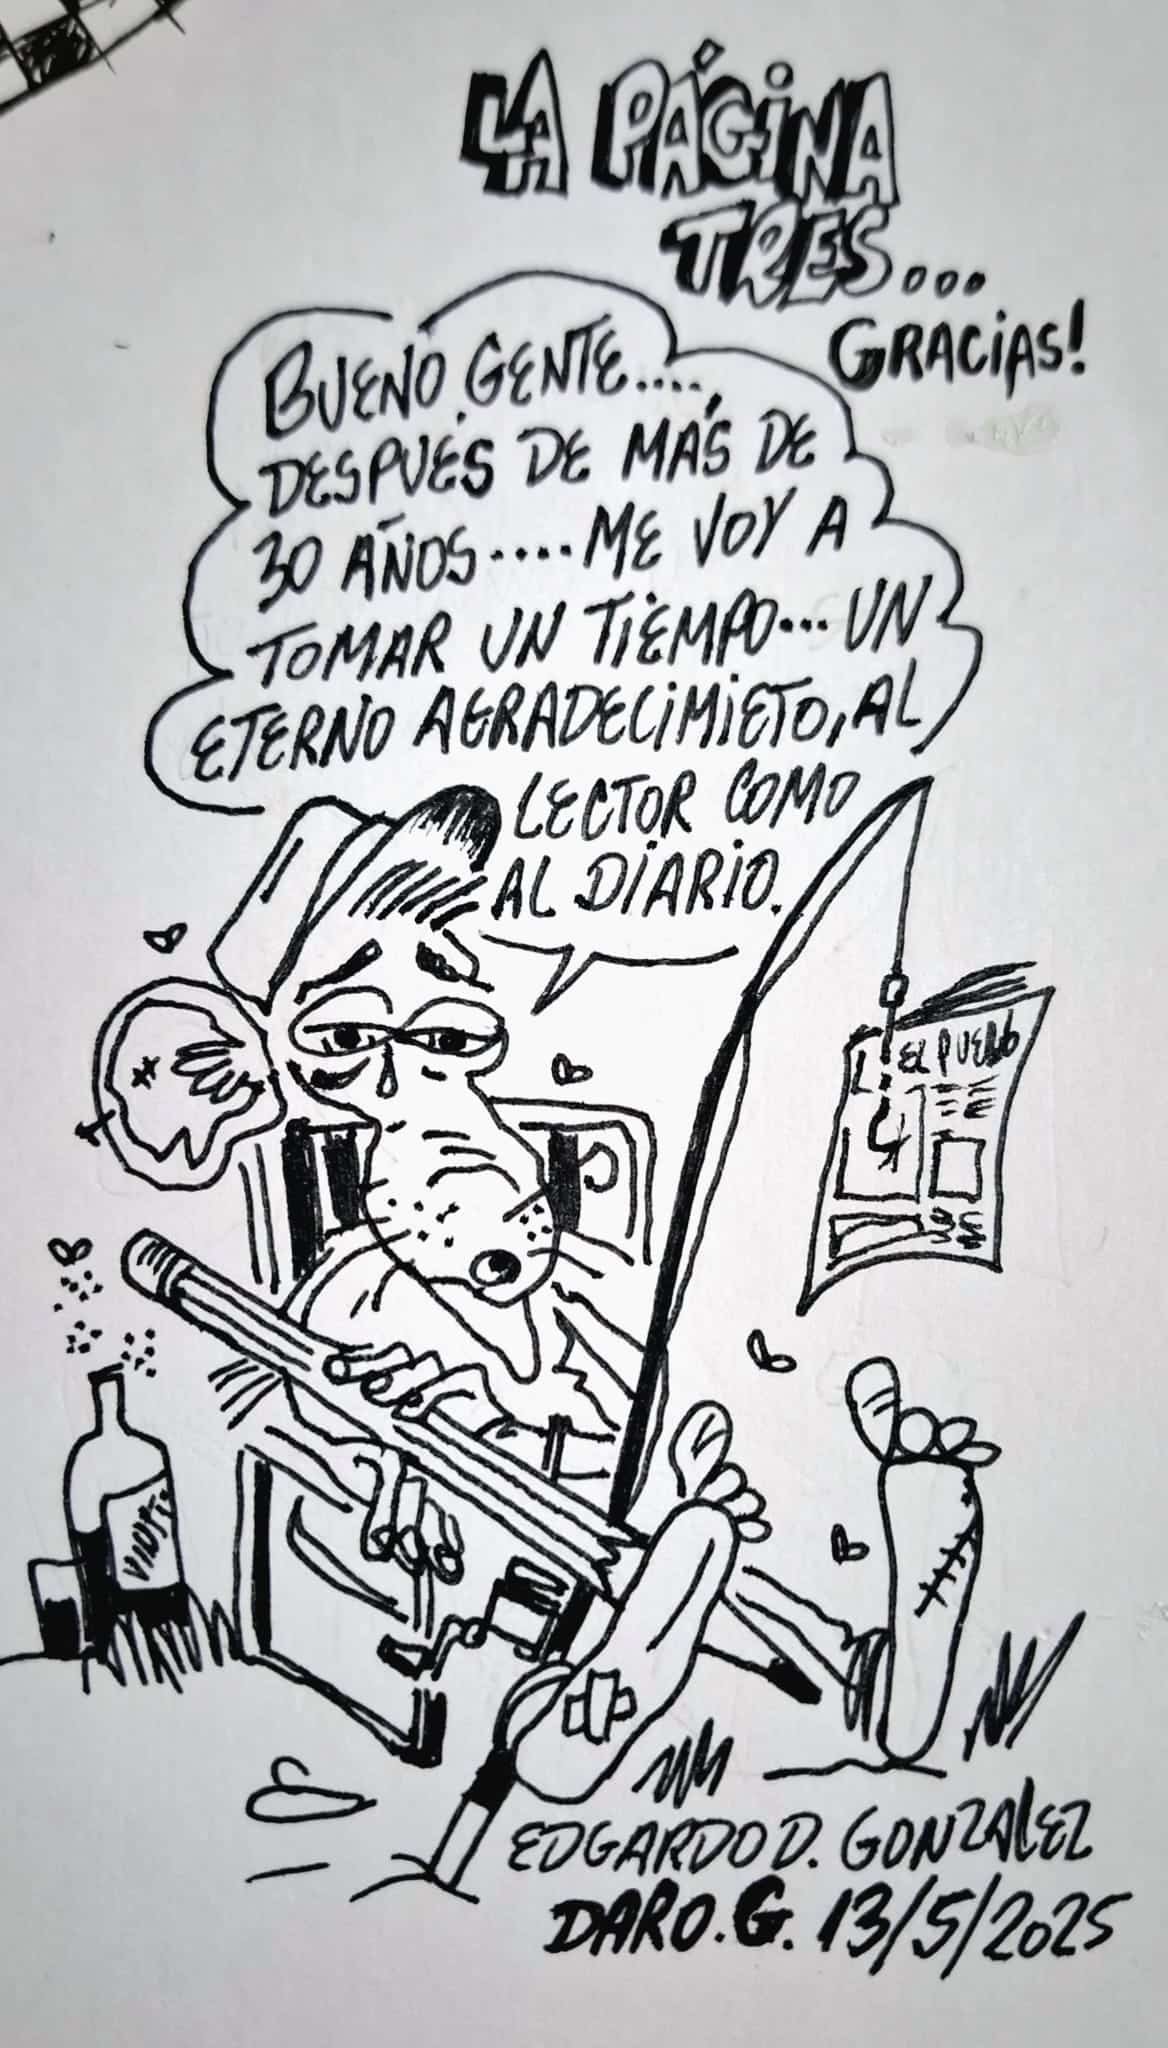 LA PÁGINA
TRES...
GRACIAS!
BUENO GENTE....
DESPUÉS DE MÁS DE
30 AÑOS.... ME VOY A
TOMAR UN TIEMPO... UN
ETERNO AGRADECIMIETO, AL
LECTOR COMO
AL DIARIO.
EL PUEBLO
EDGARDO D. GONZALEZ
DARO. G. 13/5/2025